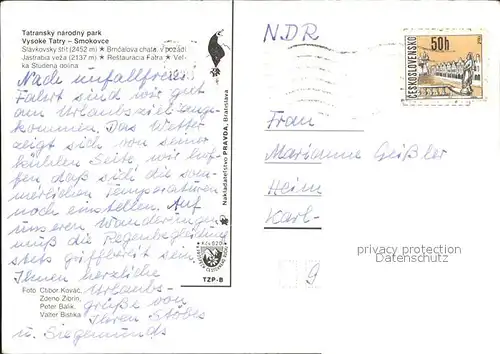 Tatranský národný park
Vysoke Tatry – Smokovce
Slavkovský štít (2452 m) ★ Brnčalova chata, v pozadí
Jastrabia veža (2137 m) ★ Reštaurácia Fatra ★ Veľ-
ká Studená dolina
Nach unfallfreier
Fahrt sind wir gut
am Urlaubsziel ange-
kommen. Das Wetter
zeigt sich von seiner
kühlen Seite, wir hof-
fen daß sich die som-
merlichen Temperaturen
noch einstellen. Auf
unseren Wanderungen
muß die Regenbekleidung
stets griffbereit sein.
Ihnen herzliche
Urlaubs-
grüße von
Ihren Stöbes
u. Siegemunds
Foto: Ctibor Kováč,
Zdeno Zibrin,
Peter Balik,
Valter Bistika
Nakladateľstvo PRAVDA, Bratislava
TZP-B
NDR
ČESKOSLOVENSKO
50h
Frau
Marianne Geißler
Heim
Karl-
privacy protection
Datenschutz
9